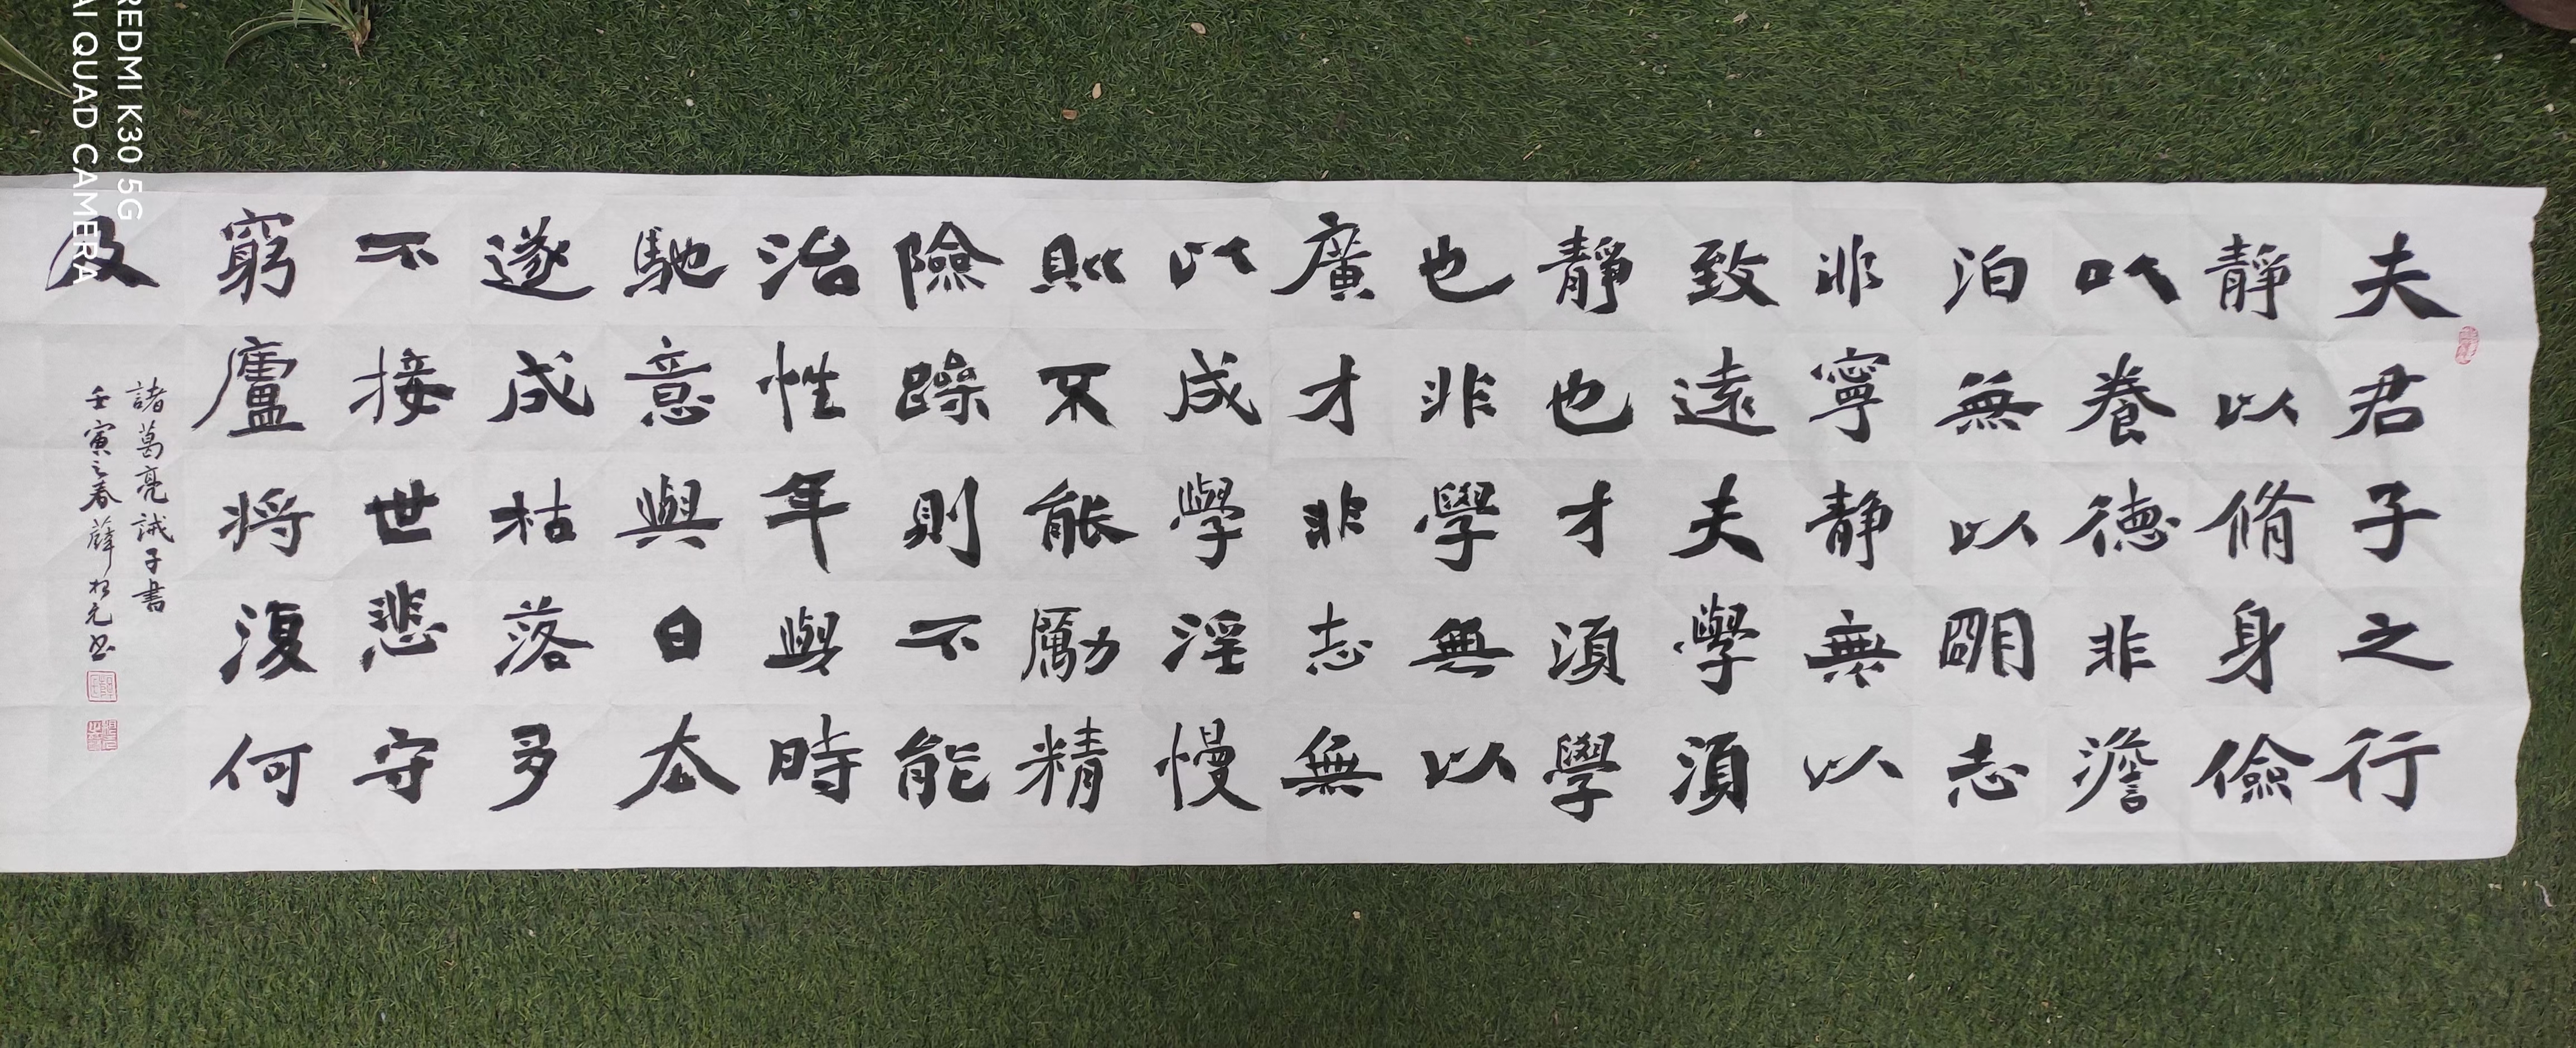 夫君子之行
靜以脩身儉
㕥養德非澹
泊無以朙志
非寧靜無以
致遠夫學須
靜也才須學
也非學無以
廣才非志無
以成學淫慢
則不能勵精
險躁則不能
治性年與時
馳意與日去
遂成枯落多
不接世悲守
窮廬將復何
及
諸葛亮誡子書
壬寅之春薛松元書
REDMI K30 5G
AI QUAD CAMERA